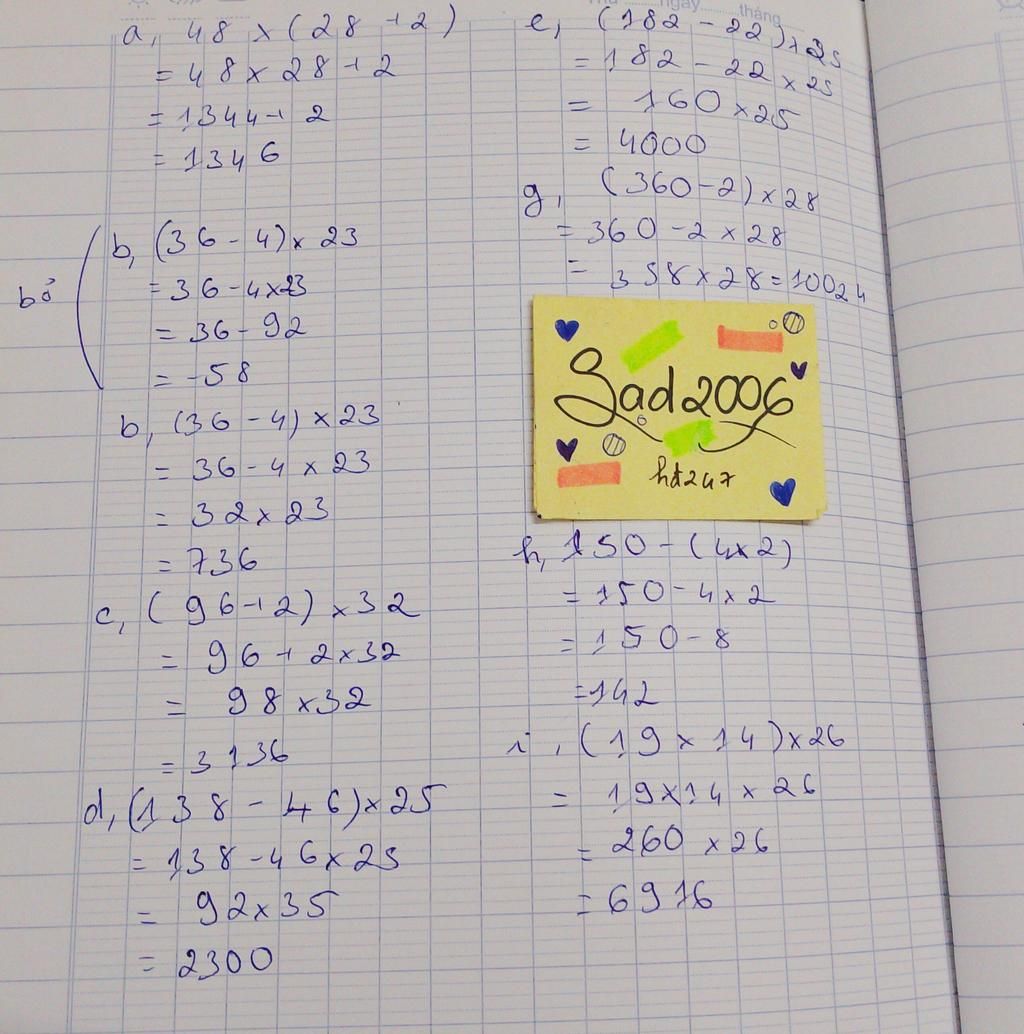 a, 48 x (28 + 2)
= 48 x 28 + 2
= 1344 + 2
= 1346
bỏ
b, (36 - 4) x 23
= 36 - 4 x 23
= 36 - 92
= -58
b, (36 - 4) x 23
= 36 - 4 x 23
= 32 x 23
= 736
c, (96 + 2) x 32
= 96 + 2 x 32
= 98 x 32
= 3136
d, (138 - 46) x 25
= 138 - 46 x 25
= 92 x 35
= 2300
ngày tháng
e, (182 - 22) x 25
= 182 - 22 x 25
= 160 x 25
= 4000
g, (360 - 2) x 28
= 360 - 2 x 28
= 358 x 28 = 10024
Sad2006
hđ247
h, 150 - (4x2)
= 150 - 4 x 2
= 150 - 8
= 142
i, (19 x 14) x 26
= 19 x 14 x 26
= 260 x 26
= 6916